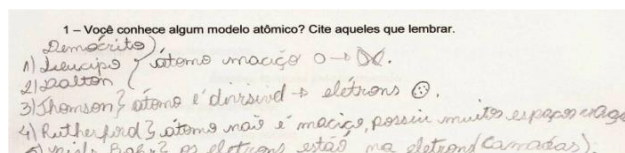 1 – Você conhece algum modelo atômico? Cite aqueles que lembrar.
Demócrito
1) Leucipo } átomo maciço
2) Dalton
3) Thomson } átomo é divisivel → elétrons
4) Rutherford } átomo não é maciço, possui muitos espaços
os elétrons estão na eletros (camadas).